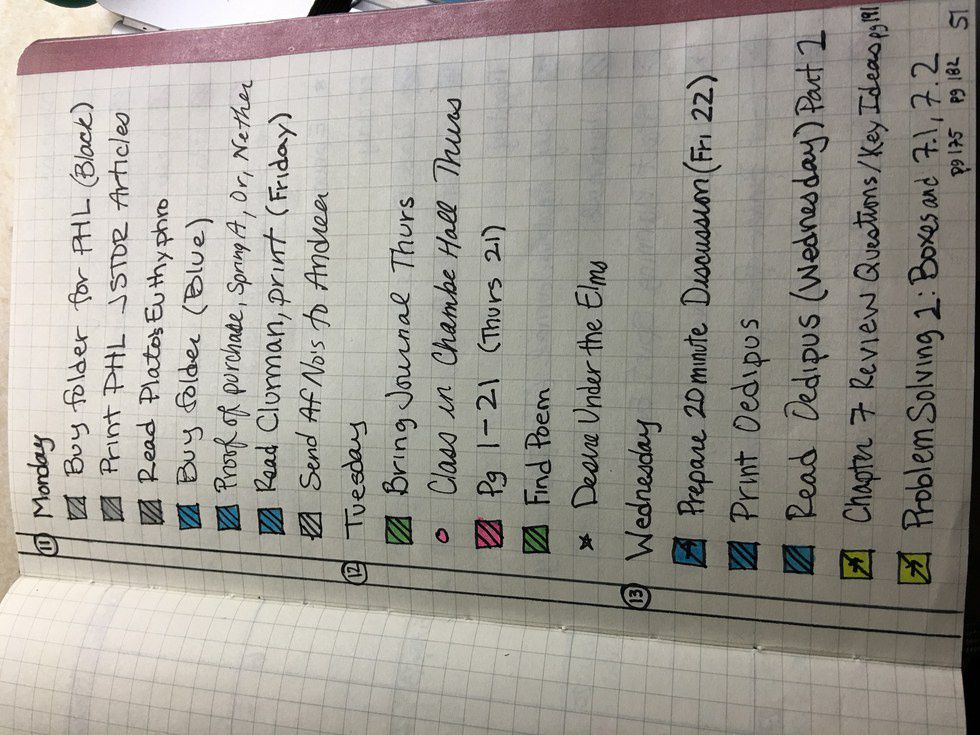 11 Monday
Buy folder for PHL (Black)
Print PHL JSTOR Articles
Read Plato's Euthyphro
Buy folder (Blue)
Proof of purchase, Spring A, Or, Nether
Read Clurman, print (Friday)
Send Af No's to Andrea
12 Tuesday
Bring Journal Thurs
Class in Chambe Hall Thurs
Pg 1-21 (Thurs 21)
Find Poem
Desire Under the Elms
13 Wednesday
Prepare 20 minute Discussion (Fri 22)
Print Oedipus
Read Oedipus (Wednesday) Part 2
Chapter 7 Review Questions/Key Ideas pg 191
Problem Solving 2: Boxes and 7.1, 7.2
pg 175 pg 182
51